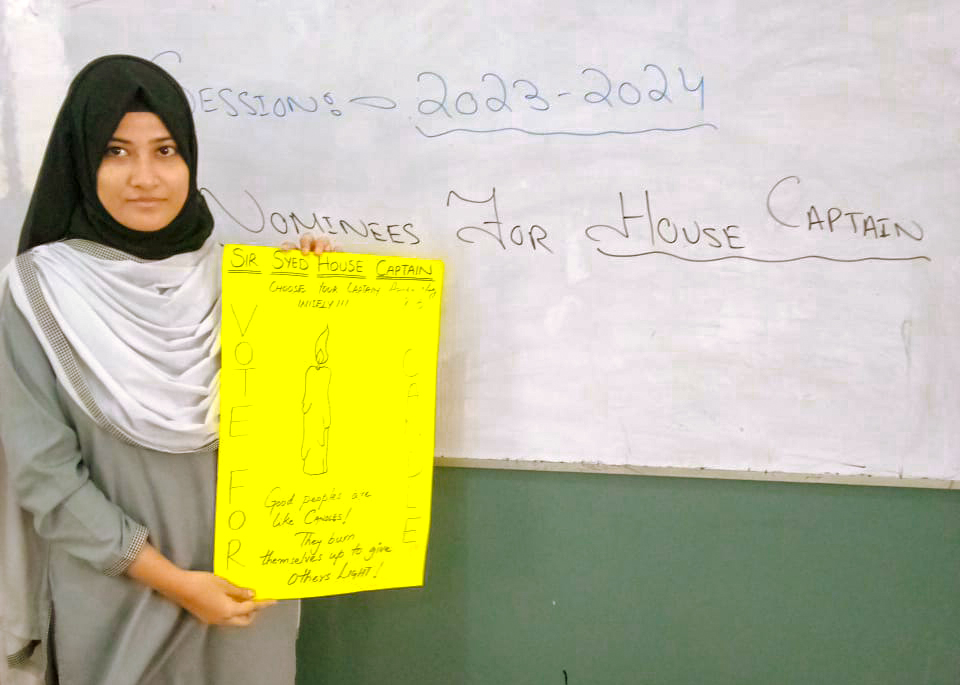 SESSION:- 2023-2024
NOMINEES FOR HOUSE CAPTAIN
SIR SYED HOUSE CAPTAIN
CHOOSE YOUR CAPTAIN
WISELY!!!
VOTE FOR
CANDLE
Good peoples are
like CANDLES!
They burn
themselves up to give
others LIGHT!